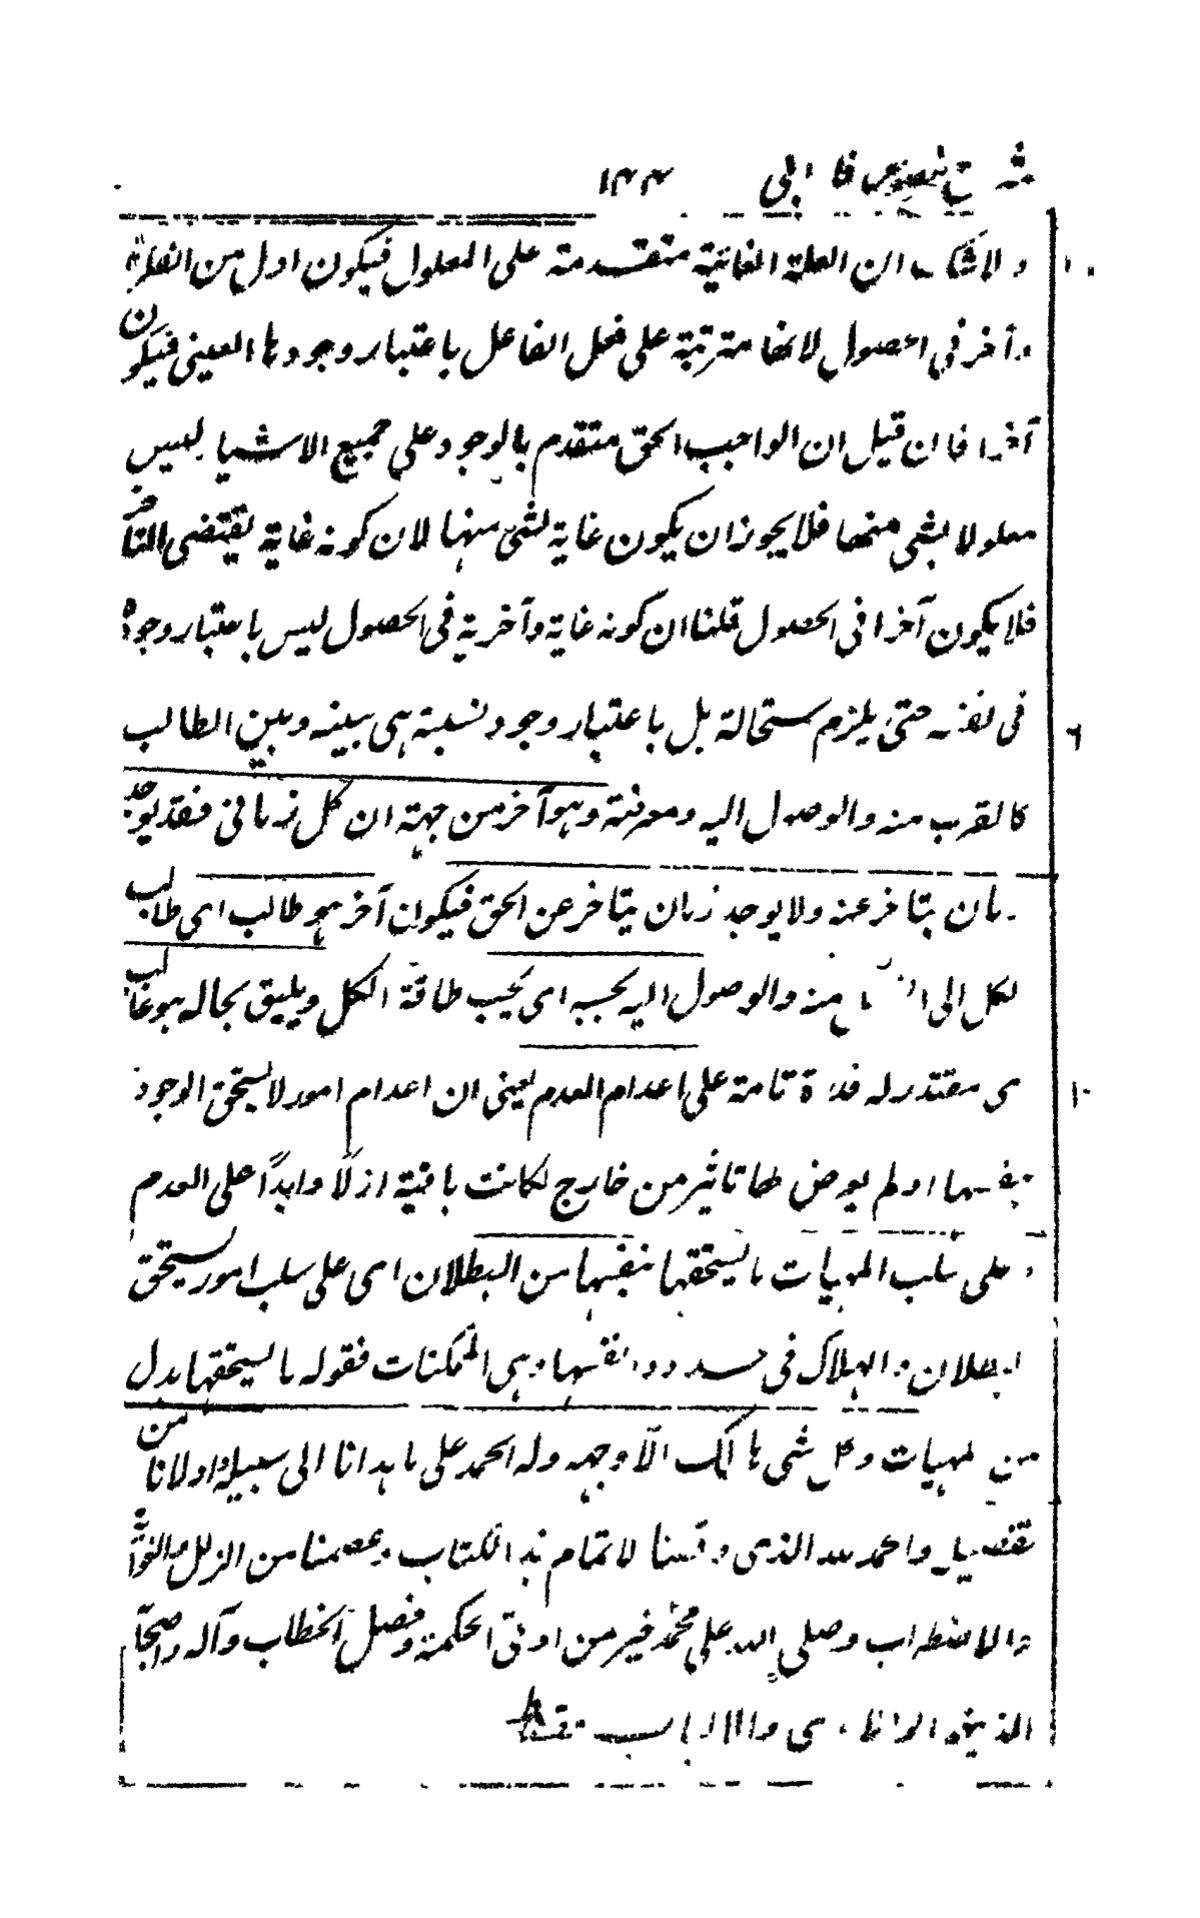 شرح فصوص فارابی ۱۴۴
ولا شك ان العلة الغائية متقدمة على المعلول فيكون اول من الفطرة
وآخر فی الحصول لانها مترتبة على فعل الفاعل باعتبار وجودها العينى فيكون
آخرا فان قيل ان الواجب الحق متقدم بالوجود على جميع الاشيا ليس
معلولا بشئ منها فلا يجوز ان يكون غاية لشئ منها لان كونه غاية يقتضى التأخر
فلا يكون آخرا فى الحصول قلنا ان كونه غاية وآخرية فى الحصول ليس باعتبار وجوده
فى نفسه حتى يلزم استحالة بل باعتبار وجود نسبة هى بينه وبين الطالب
كالقرب منه والوصول اليه ومعرفته وهو آخر من جهة ان كل زمانى فقد يوجد
زمان يتاخر عنه ولا يوجد زمان يتاخر عن الحق فيكون آخر هو طالب اى طالب
لكل الى منه والوصول اليه بحسبه اى بحسب طاقة الكل ويليق بحاله هو غالب
اى مقتدر له قدرة تامة على اعدام العدم يعنى ان اعدام امور لا يستحق الوجود
بنفسها اولم يعرض لها تاثير من خارج لكانت باقية ازلًا وابدًا على العدم
وعلى سلب المهيات ما يستحقها بنفسها من البطلان اى على سلب امور يستحق
البطلان والهلاك فى حدود انفسها وهى الممكنات فقوله ما يستحقها بدل
من المهيات وكل شئ هالك الّا وجهه وله الحمد على ما هدانا الى سبيله واولانا من
تفضيله والحمد لله الذى وفقنا لاتمام هذا الكتاب وعصمنا من الزلل والغوآية
والاضطراب وصلى الله على محمد خير من اوتى الحكمة وفصل الخطاب وآله واصحابه
الذين والالباب
۱۰
٦
۱۰